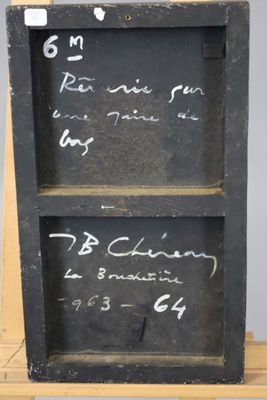 6 M
Rêverie sur
une paire de
bas
JB Chéreau
La Bouchetière
- 963 - 64